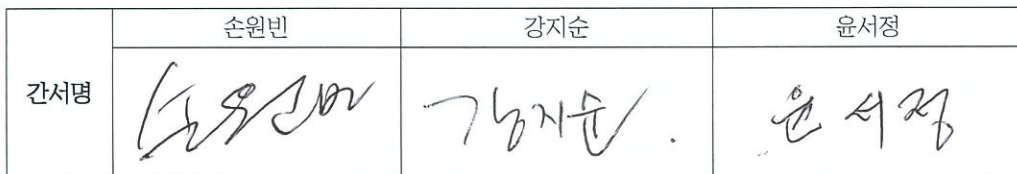 손원빈 강지순 윤서정
간서명 손원빈 강지순. 윤서정